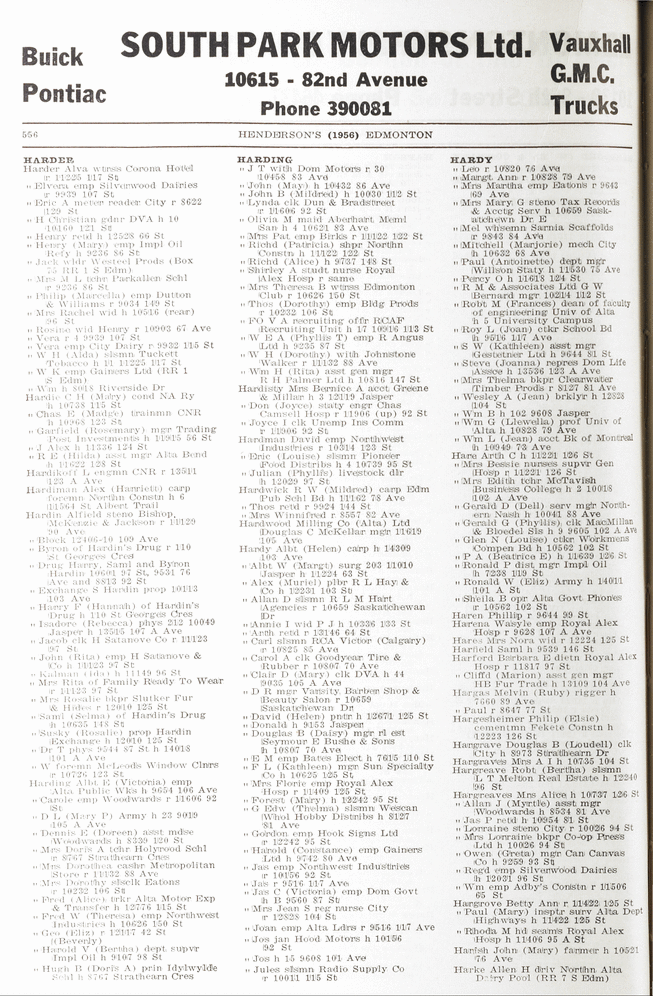 Buick
Pontiac
SOUTH PARK MOTORS Ltd.
10615 - 82nd Avenue
Phone 390081
Vauxhall
G.M.C.
Trucks
556
HENDERSON'S (1956) EDMONTON
HARDER
Harder Alva wtrss Corona Hotel
r 11225 117 St
" Elvera emp Silverwood Dairies
r 9939 107 St
" Eric A meter reader City r 8622
129 St
" H Christian gdnr DVA h 10
10160 121 St
" Henry retd h 12528 66 St
" Henry (Mary) emp Impl Oil
Refy h 9236 86 St
" Jack wldr Westeel Prods (Box
75 RR 1 S Edm)
" Mrs M L tchr Parkallen Schl
r 9236 86 St
" Philip (Marcella) emp Dutton
& Williams r 9034 149 St
" Mrs Rachel wid h 10516 (rear)
96 St
" Rosine wid Henry r 10903 67 Ave
" Vera r 4 9939 107 St
" Vera emp City Dairy r 9932 115 St
" W H (Alda) slsmn Tuckett
Tobacco h 11 11225 117 St
" W K emp Gainers Ltd (RR 1
S Edm)
" Wm h 8018 Riverside Dr
Hardie C H (Mary) cond NA Ry
h 10738 115 St
" Chas E (Madge) trainmn CNR
h 10968 123 St
" Garfield (Rosemary) mgr Trading
Post Investments h 11915 56 St
" J Alex h 11336 124 St
" R E (Hilda) asst mgr Alta Bend
h 11622 128 St
Hardikoff L engmn CNR r 13511
123 A Ave
Hardiman Alex (Harriett) carp
foremn Northn Constn h 6
11564 St Albert Trail
Hardin Alfield steno Bishop,
McKenzie & Jackson r 11129
90 Ave
" Block 12406-10 109 Ave
" Byron of Hardin's Drug r 110
St Georges Cres
" Drug Harry, Saml and Byron
Hardin 10601 97 St, 9531 76
Ave and 8813 92 St
" Exchange S Hardin prop 10113
103 Ave
" Harry F (Hannah) of Hardin's
Drug h 110 St Georges Cres
" Isadore (Rebecca) phys 212 10049
Jasper h 13515 107 A Ave
" Jacob clk H Satanove Co r 11123
97 St
" John (Rita) emp H Satanove &
Co h 11123 97 St
" Kalman (Ida) h 11149 96 St
" Mrs Rita of Family Ready To Wear
r 11123 97 St
" Mrs Rosalie bkpr Slutker Fur
& Hides r 12010 125 St
" Saml (Selma) of Hardin's Drug
h 10635 148 St
" Susky (Rosalie) prop Hardin
Exchange h 12010 125 St
" Dr T phys 9544 87 St h 14018
101 A Ave
" W foremn McLeods Window Clnrs
r 10726 123 St
Harding Albt E (Victoria) emp
Alta Public Wks h 9654 106 Ave
" Carole emp Woodwards r 11606 92
St
" D L (Mary P) Army h 23 9019
105 A Ave
" Dennis E (Doreen) asst mdse
Woodwards h 8339 120 St
" Mrs Doris A tchr Holyrood Schl
r 8767 Strathearn Cres
" Mrs Dorothea cashr Metropolitan
Store r 11132 88 Ave
" Mrs Dorothy slsclk Eatons
r 10232 106 St
" Fred (Alice) trkr Alta Motor Exp
& Transfer h 12776 115 St
" Fred W (Theresa) emp Northwest
Industries h 10626 150 St
" Geo (Eliz) r 12117 42 St
(Beverly)
" Harold V (Bertha) dept supvr
Impl Oil h 9107 98 St
" Hugh B (Doris A) prin Idylwylde
Schl h 8767 Strathearn Cres
HARDING
" J T with Dom Motors r 30
10458 83 Ave
" John (May) h 10432 86 Ave
" John B (Mildred) h 10030 112 St
" Lynda clk Dun & Bradstreet
r 11606 92 St
" Olivia M maid Aberhart Meml
San h 4 10621 83 Ave
" Mrs Pat emp Birks r 11122 122 St
" Richd (Patricia) shpr Northn
Constn h 11122 122 St
" Richd (Alice) h 9737 148 St
" Shirley A studt nurse Royal
Alex Hosp r same
" Mrs Theresa B wtrss Edmonton
Club r 10626 150 St
" Thos (Dorothy) emp Bldg Prods
r 10232 106 St
" FO V A recruiting offr RCAF
Recruiting Unit h 17 10916 113 St
" W E A (Phyllis T) emp R Angus
Ltd h 9235 87 St
" W H (Dorothy) with Johnstone
Walker r 11132 88 Ave
" Wm H (Rita) asst gen mgr
R H Palmer Ltd h 10816 147 St
Hardisty Mrs Bernice A acct Greene
& Millar h 3 12119 Jasper
" Don (Joyce) staty engr Chas
Camsell Hosp r 11906 (up) 92 St
" Joyce I clk Unemp Ins Comm
r 11906 92 St
Hardman David emp Northwest
Industries r 10314 123 St
" Eric (Louise) slsmn Pioneer
Food Distribs h 4 10739 95 St
" Julian (Phyllis) livestock dlr
h 12029 97 St
Hardwick R W (Mildred) carp Edm
Pub Schl Bd h 11162 78 Ave
" Thos retd r 9924 144 St
" Mrs Winnifred r 8557 82 Ave
Hardwood Milling Co (Alta) Ltd
Douglas C McKellar mgr 11619
105 Ave
Hardy Albt (Helen) carp h 14309
103 Ave
" Albt W (Margt) surg 203 11010
Jasper h 11224 63 St
" Alex (Muriel) plbr R L Hay &
Co h 12231 103 St
" Allan D slsmn R L M Hart
Agencies r 10659 Saskatchewan
Dr
" Annie I wid P J h 10336 133 St
" Arth retd r 13146 64 St
" Carl slsmn RCA Victor (Calgary)
r 10825 85 Ave
" Carol A clk Goodyear Tire &
Rubber r 10807 70 Ave
" Clair D (Mary) clk DVA h 44
9035 105 A Ave
" D R mgr Varsity Barber Shop &
Beauty Salon r 10659
Saskatchewan Dr
" David (Helen) pntr h 12671 125 St
" Donald h 9153 Jasper
" Douglas B (Daisy) mgr rl est
Seymour E Busbe & Sons
h 10807 70 Ave
" E M emp Bates Elect h 7615 110 St
" F L (Kathleen) mgr Sun Specialty
Co h 10625 125 St
" Mrs Florie emp Royal Alex
Hosp r 11409 125 St
" Forest (Mary) h 12242 95 St
" G Edw (Thelma) slsmn Wescan
Whol Hobby Distribs h 8127
81 Ave
" Gordon emp Hook Signs Ltd
r 12242 95 St
" Harold (Constance) emp Gainers
Ltd h 9742 80 Ave
" Jas emp Northwest Industries
r 10156 92 St
" Jas r 9516 117 Ave
" Jas C (Victoria) emp Dom Govt
h B 9560 87 St
" Mrs Jean S reg nurse City
r 12828 104 St
" Joan emp Alta Ldrs r 9516 117 Ave
" Jos jan Hood Motors h 10156
92 St
" Jos h 15 9608 101 Ave
" Jules slsmn Radio Supply Co
r 10011 115 St
HARDY
" Leo r 10820 76 Ave
" Margt Ann r 10828 79 Ave
" Mrs Martha emp Eatons r 9643
69 Ave
" Mrs Mary G steno Tax Records
& Acctg Serv h 10659 Sask-
atchewn Dr E
" Mel whsemn Sarnia Scaffolds
r 9843 84 Ave
" Mitchell (Marjorie) mech City
h 10632 68 Ave
" Paul (Antoinette) dept mgr
Willson Staty h 11530 75 Ave
" Percy O h 11618 124 St
" R M & Associates Ltd G W
Bernard mgr 10214 112 St
" Robt M (Frances) dean of faculty
of engineering Univ of Alta
h 5 University Campus
" Roy L (Joan) ctkr School Bd
h 9516 117 Ave
" S W (Kathleen) asst mgr
Gestetner Ltd h 9644 81 St
" Steve (Joanna) repres Dom Life
Assce h 13536 123 A Ave
" Mrs Thelma bkpr Clearwater
Timber Prods r 8127 81 Ave
" Wesley A (Jean) brklyr h 12828
104 St
" Wm B h 102 9608 Jasper
" Wm G (Llewella) prof Univ of
Alta h 10828 79 Ave
" Wm L (Jean) acct Bk of Montreal
h 10949 73 Ave
Hare Arth C h 11221 126 St
" Mrs Bessie nurses supvr Gen
Hosp r 11221 126 St
" Mrs Edith tchr McTavish
Business College h 2 10018
102 A Ave
" Gerald D (Dell) serv mgr North-
ern Nash h 10041 88 Ave
" Gerald G (Phyllis) clk MacMillan
& Bloedel Sls h 9 9605 102 A Ave
" Glen N (Louise) ctkr Workmens
Compen Bd h 10562 102 St
" P A (Beatrice E) h 11639 126 St
" Ronald P dist mgr Impl Oil
h 7238 119 St
" Ronald W (Eliz) Army h 14011
101 A St
" Sheila B opr Alta Govt Phones
r 10562 102 St
Haren Phillip r 9644 99 St
Harena Wasyle emp Royal Alex
Hosp r 9628 107 A Ave
Hares Mrs Nora wid r 12224 125 St
Harfield Saml h 9539 146 St
Harford Barbara E dietn Royal Alex
Hosp r 11817 97 St
" Cliffd (Marion) asst gen mgr
HB Fur Trade h 13109 104 Ave
Hargas Melvin (Ruby) rigger h
7660 89 Ave
" Paul r 8647 77 St
Hargesheimer Philip (Elsie)
cementmn Fekete Constn h
12223 126 St
Hargrave Douglas B (Loudell) clk
City h 8973 Strathearn Dr
Hargraves Mrs A I h 10735 104 St
Hargreave Robt (Bertha) slsmn
L T Melton Real Estate h 12240
96 St
Hargreaves Mrs Alice h 10737 126 St
" Allan J (Myrtle) asst mgr
Woodwards h 8534 81 Ave
" Jas P retd h 10954 81 St
" Lorraine steno City r 10026 94 St
" Mrs Lorraine bkpr Co-op Press
Ltd h 10026 94 St
" Owen (Greta) mgr Can Canvas
Co h 9259 93 St
" Regd emp Silverwood Dairies
h 12031 96 St
" Wm emp Adby's Constn r 11506
65 St
Hargrove Betty Ann r 11422 125 St
" Paul (Mary) insptr surv Alta Dept
Highways h 11422 125 St
" Rhoda M hd seams Royal Alex
Hosp h 11406 95 A St
Harish John (Mary) farmer h 10521
76 Ave
Harke Allen H driv Northn Alta
Dairy Pool (RR 7 S Edm)